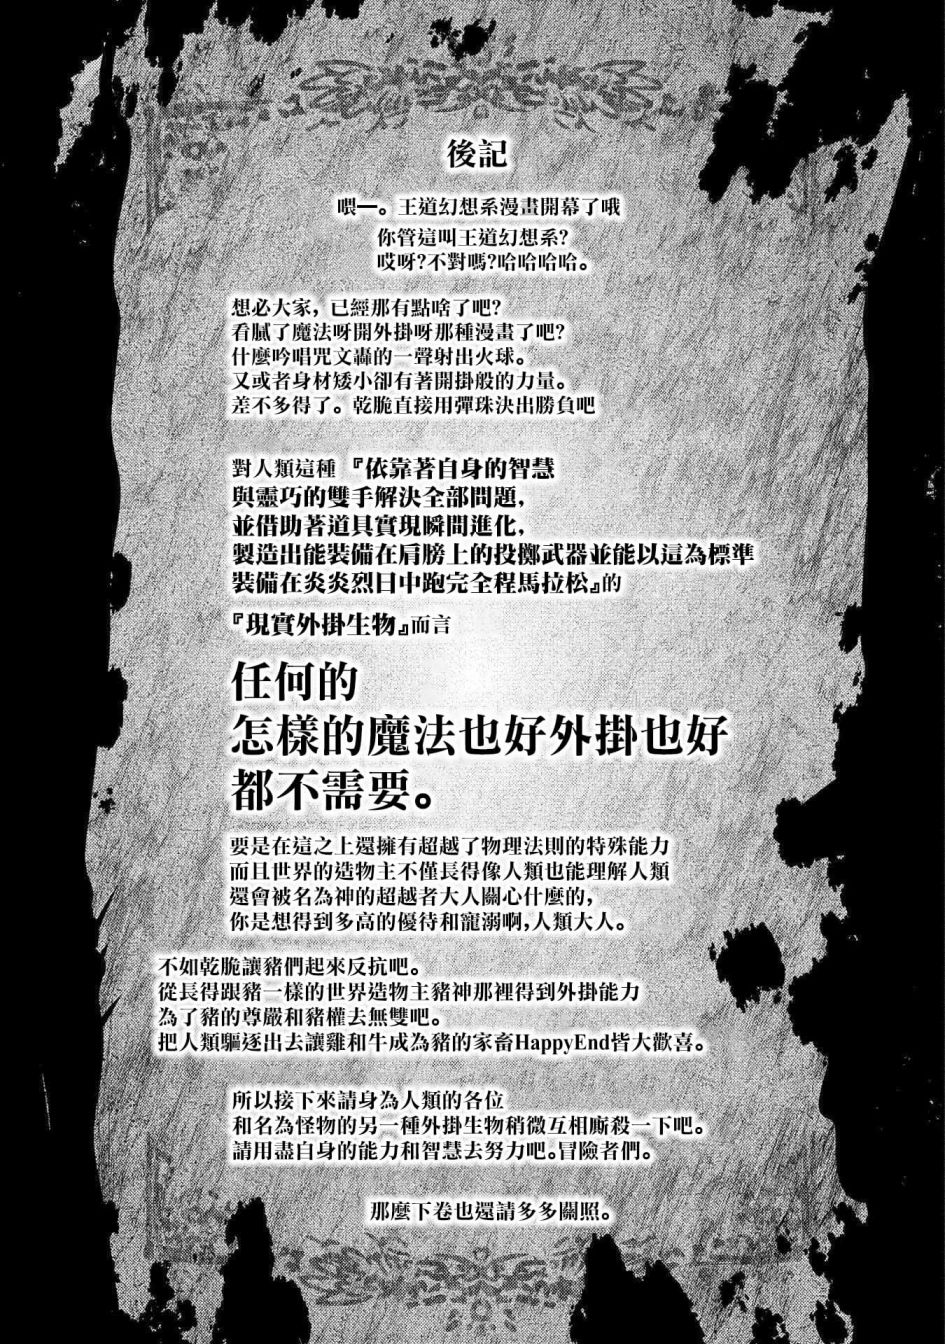 後記
喂一。王道幻想系漫畫開幕了哦
你管這叫王道幻想系?
哎呀?不對嗎?哈哈哈哈。
想必大家，已經那有點啥了吧?
看膩了魔法呀開外掛呀那種漫畫了吧?
什麼吟唱咒文轟的一聲射出火球。
又或者身材矮小卻有著開掛般的力量。
差不多得了。乾脆直接用彈珠決出勝負吧
對人類這種『依靠著自身的智慧
與靈巧的雙手解決全部問題，
並借助著道具實現瞬間進化，
製造出能裝備在肩膀上的投擲武器並能以這為標準
裝備在炎炎烈日中跑完全程馬拉松』的
『現實外掛生物』而言
任何的
怎樣的魔法也好外掛也好
都不需要。
要是在這之上還擁有超越了物理法則的特殊能力
而且世界的造物主不僅長得像人類也能理解人類
還會被名為神的超越者大人關心什麼的，
你是想得到多高的優待和寵溺啊，人類大人。
不如乾脆讓豬們起來反抗吧。
從長得跟豬一樣的世界造物主豬神那裡得到外掛能力
為了豬的尊嚴和豬權去無雙吧。
把人類驅逐出去讓雞和牛成為豬的家畜HappyEnd皆大歡喜。
所以接下來請身為人類的各位
和名為怪物的另一種外掛生物稍微互相廝殺一下吧。
請用盡自身的能力和智慧去努力吧。冒險者們。
那麼下卷也還請多多關照。